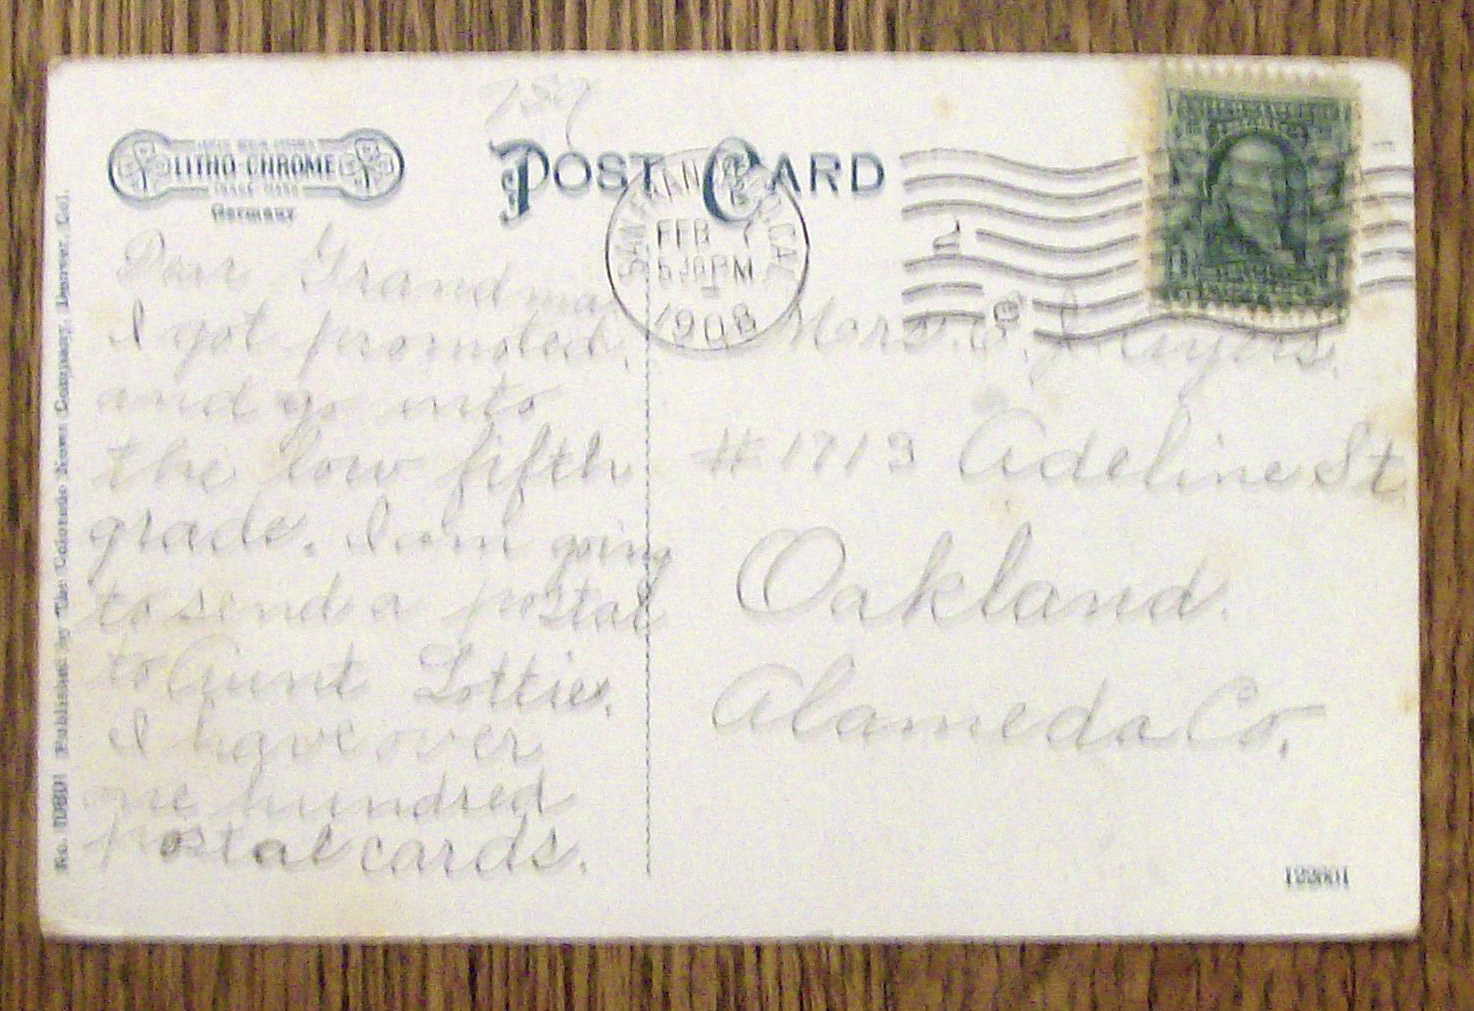 787
LITHO-CHROME
TRADE MARK
Germany
POST CARD
SAN FRANCISCO, CAL.
FEB 7
5 30 PM
1908
Dear Grandma
I got promoted,
and go into
the low fifth
grade. I am going
to send a postal
to Aunt Lottie.
I have over
one hundred
postal cards.
Mrs.
# 1713 Adeline St
Oakland.
Alameda Co.
Published by The Colorado News Company, Denver, Col.
122601